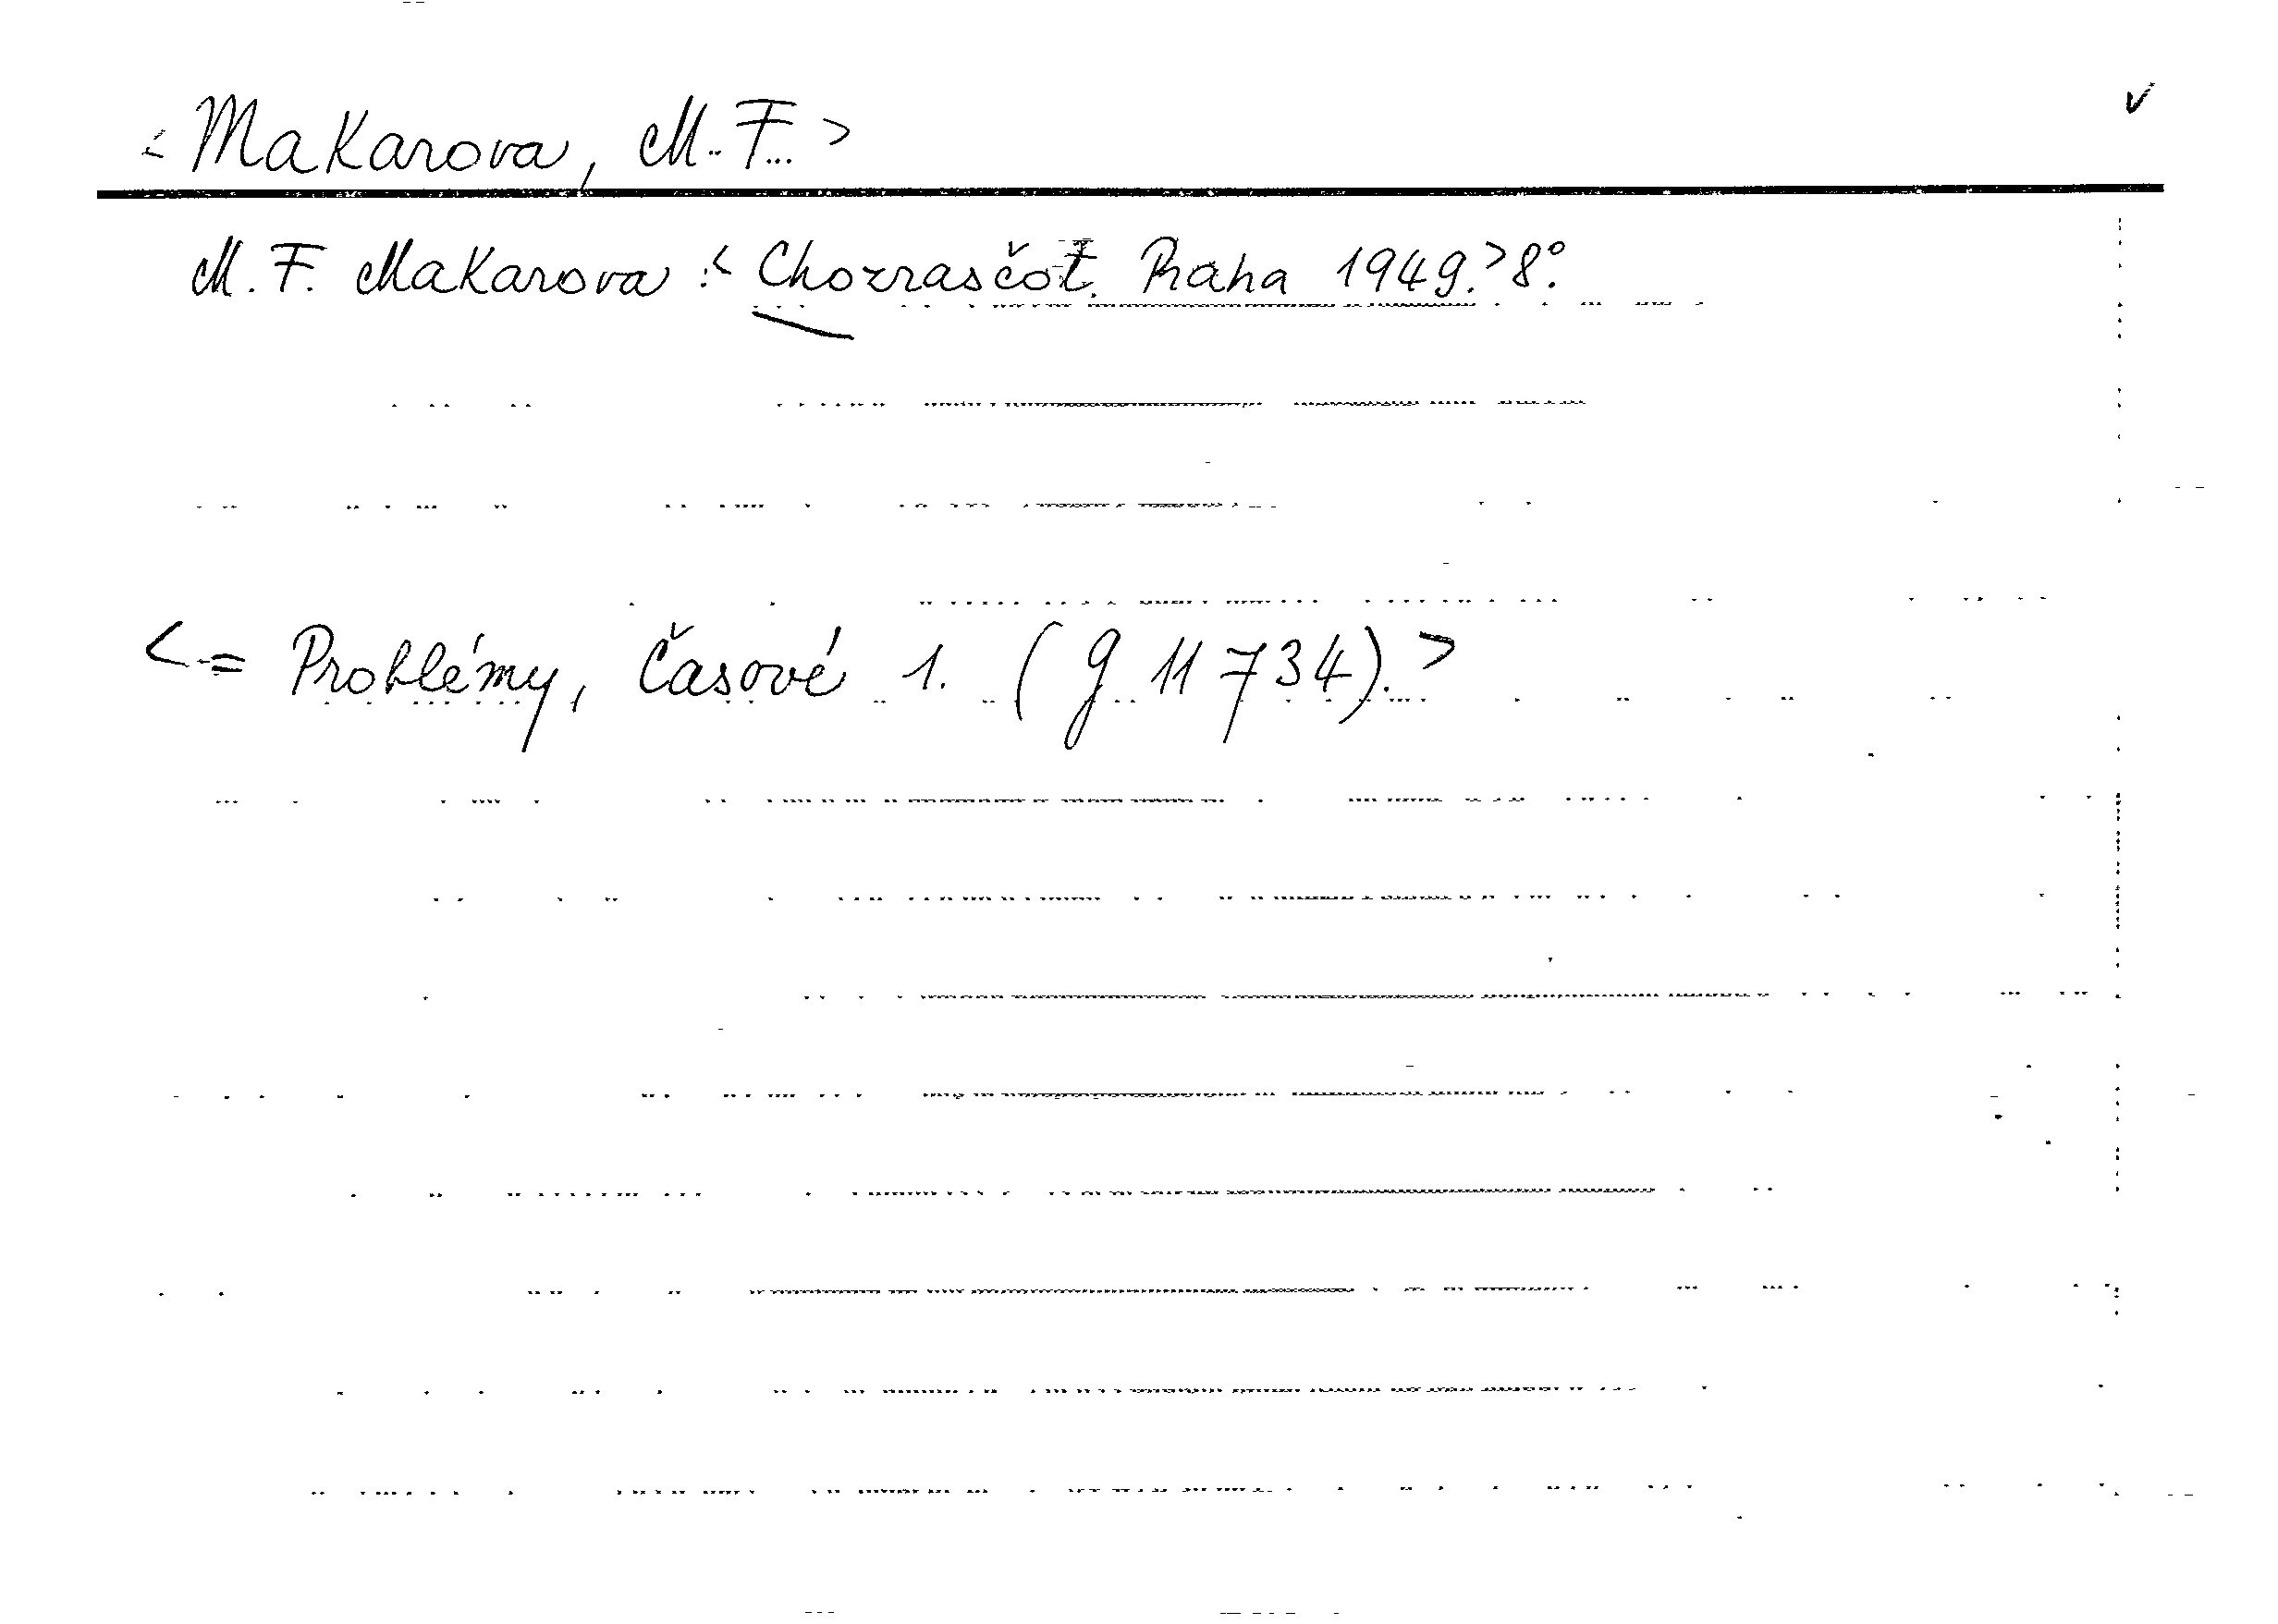 < Makarova, M. F. >
M. F. Makarova :< Chozrasčot. Praha 1949.> 8°.
<= Problémy, Časové 1. (g 11734).>